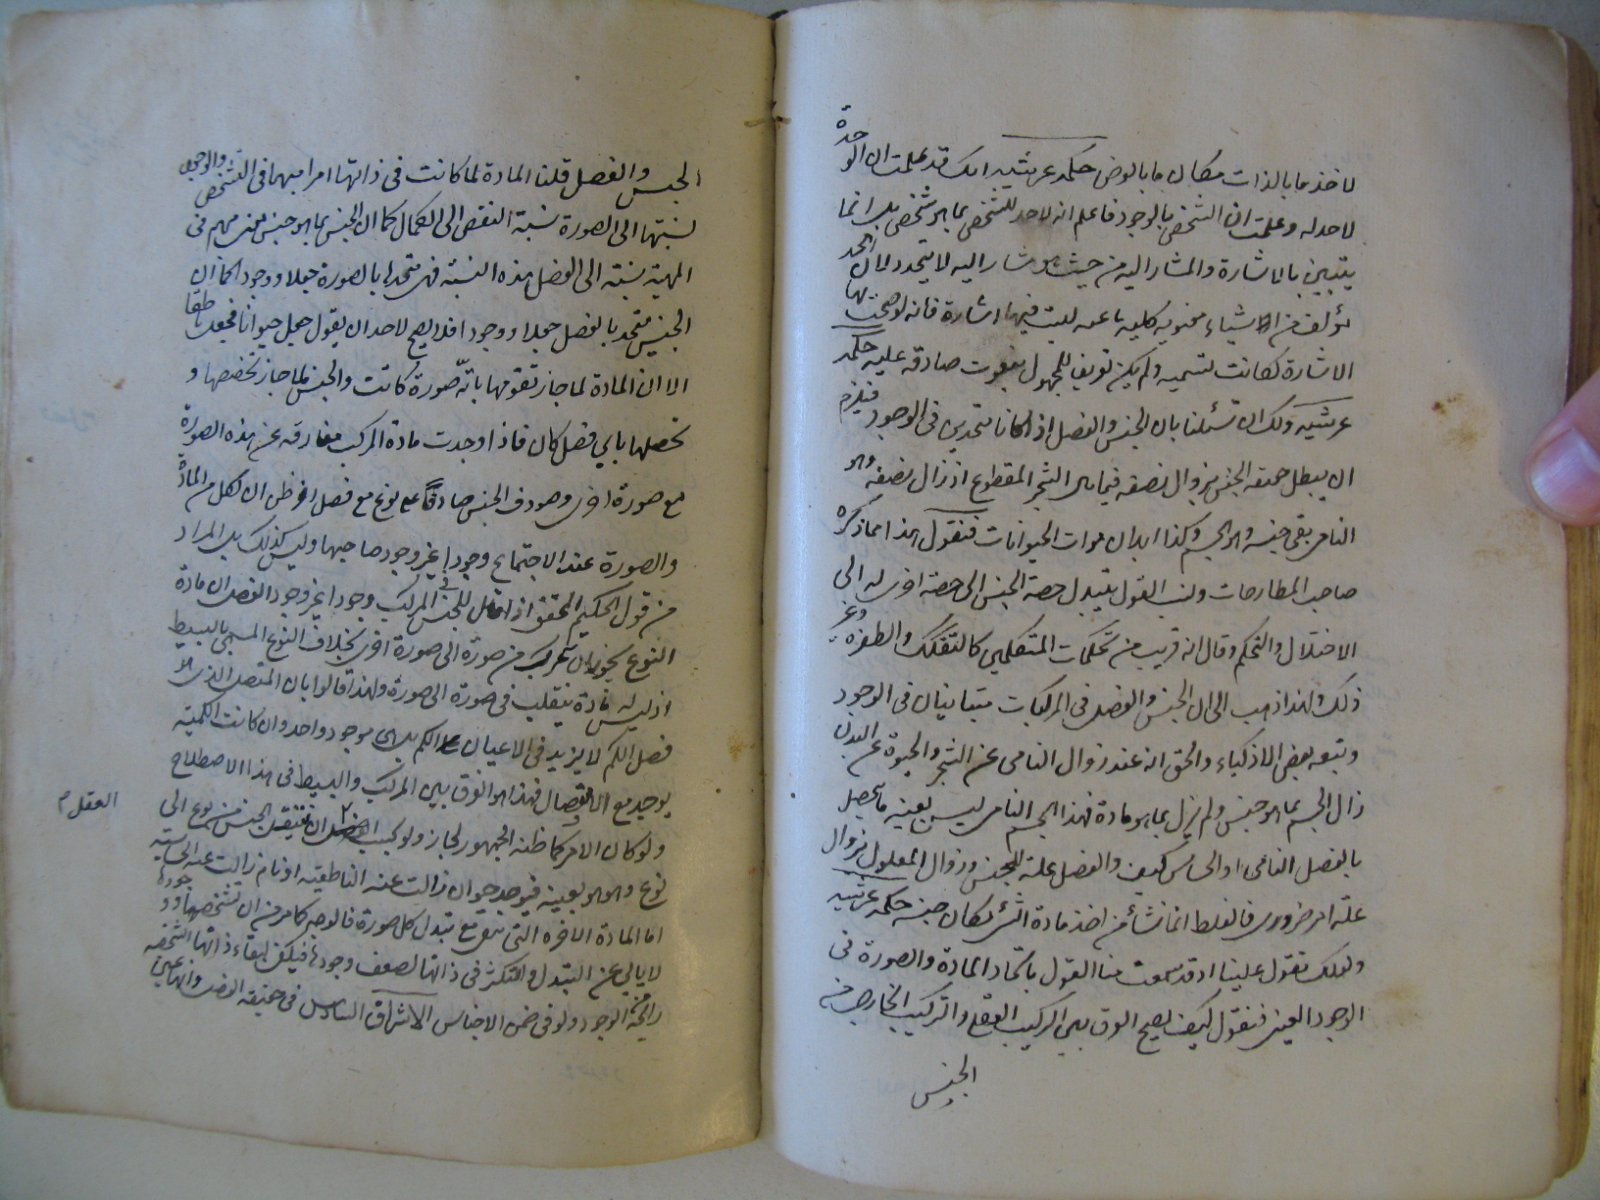 لاخذ ما بالذات مكان ما بالعرض حكمة عرشية انك قد علمت ان الوحدة
لا حد له وعلمت ان الشخص بالوجود فاعلم انه لا حد للشخص بما هو شخص بل انما
يتبين بالاشارة والمشار اليه من حيث هو مشار اليه لا يتحدد لان الحد
مؤلف من اشياء كلية ليست فيها اشارة فانه لو صحبتها
الاشارة لكانت تسمية ولم يكن تعريف المجهول بنعوت صادقة عليه حكمة
عرشية ولك ان تسئلنا بان الجنس والفصل اذا كانا متحدين فى الوجود فيلزم
ان يبطل حصة الجنس بزوال فصله فيما نرى الشجر المقطوع اذ زال فصله وهو
النامى بقى جنسه وهو الجسم وكذا ابدان موات الحيوانات فنقول هذا مما ذكره
صاحب المطارحات ونسب القول بتبدل حصة الجنس الى حصة اخرى له الى
الاختلال والتحكم وقال انه قريب من تحكمات المتكلمين كالتفكك والطفرة وغير
ذلك ولهذا ذهب الى ان الجنس والفصل فى المركبات متباينان فى الوجود
وتبعه بعض الاذكياء والحق انه عند زوال النامى عن الشجر والحيوة عن البدن
زال الجسم بما هو جنس ولم يزل بما هو مادة فهذا الجسم النامى ليس بعينه ما يحصل
بالفصل النامى او الحساس كيف والفصل علة للجنس وزوال المعلول بزوال
علته امر ضرورى فالغلط انما نشأ من اخذ مادة الشئ مكان جنسه حكمة عرشية
ولعلك تقول علينا اذ قد سمعت منا القول باتحاد المادة والصورة فى
الوجود العينى فنقول كيف يصح الفرق بين التركيب العقلى والتركيب الخارجى من
الجنس
الجنس والفصل قلنا المادة لما كانت فى ذاتها امرا مبهما فى التشخص والوجود
نسبتها الى الصورة نسبة النقص الى الكمال كما ان الجنس بما هو جنس معنى مبهم فى
المهية نسبته الى الفصل هذه النسبة فهى متحدة بالصورة جعلا ووجودا كما ان
الجنس متحد بالفصل جعلا ووجودا فلا يصح لاحد ان يقول جعل حيوانا فجعل ناطقا
الا ان المادة لما جاز تقومها باية صورة كانت والجنس لما جاز تخصصها و
تحصلها باى فصل كان فاذا وجدت مادة المركب مفارقة عن هذه الصورة
مع صورة اخرى وصودف الجنس صادقا على نوع مع فصل اخر ظن ان لكل من المادة
والصورة عند الاجتماع وجودا غير وجود صاحبها وليس كذلك بل المراد
من قول الحكيم المحقق اذا قال للجنس فى المركب وجودا غير وجود الفصل ان مادة
النوع يجوز ان تتحرك من صورة الى صورة اخرى بخلاف النوع المسمى بالبسيط
اذ ليس له مادة ينقلب فى صورة الى صورة ولهذا قالوا بان المتصل الذى هو
فصل الكم لا يزيد فى الاعيان على الكم بل هى موجود واحد وان كانت الكمية
يوجد مع الانفصال فهذا هو الفرق بين المركب والبسيط فى هذا الاصطلاح
ولو كان الامر كما ظنه الجمهور لجاز ان ينتقل الجنس من نوع الى
العقل م
نوع وهو هو بعينه فيوجد حيوان زالت عنه الناطقية او نام زالت عنه الحساسية
اما المادة الاخرة التى تبقى مع تبدل كل صورة فالوجه كما مر من ان تشخصها ووجودها
لا يابى عن التبدل والتكثر فى ذاتها لضعف وجودها فيكفى لبقاء ذاتها الشخصية
رائحة الوجود ولو فى ضمن الاجناس الاشراق السادس فى حقيقة الفصل وانها عين